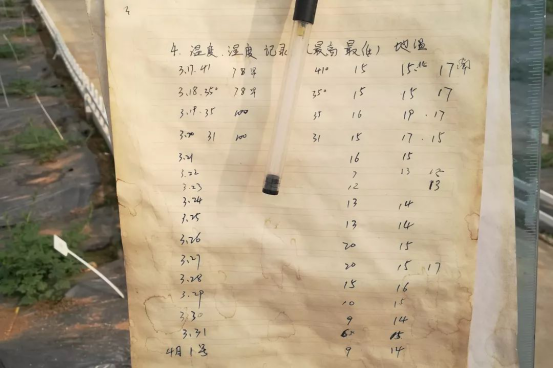 4. 温度 湿度 记录 (最高 最低) 地温
3.17. 41 78% 41° 15 15.北 17南
3.18. 35° 78% 35° 15 15 17
3.19. 35 100 35 16 19. 17
3.20 31 100 31 15 17. 15
3.21 16 15
3.22 7 13 15
3.23 12 13
3.24 13 14
3.25 13 14
3.26 20 15
3.27 20 15 17
3.28 15 16
3.29 10 15
3.30 9 14
3.31 15
4月1号 9 14